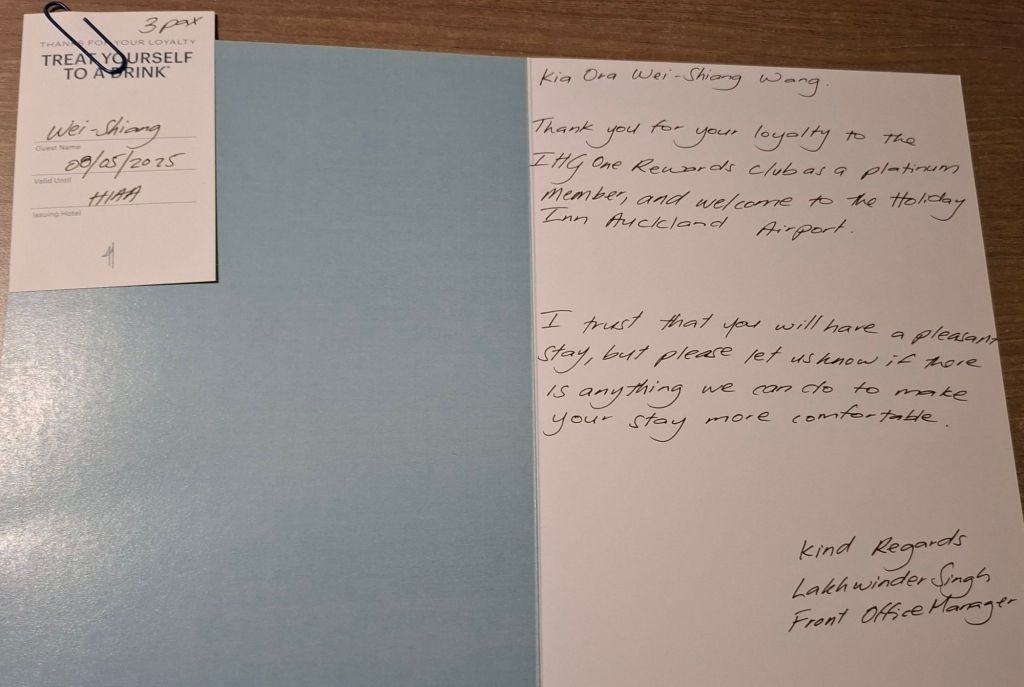 3 pax
THANKS FOR YOUR LOYALTY
TREAT YOURSELF
TO A DRINK*
Wei-Shiang
Guest Name
08/05/2025
Valid Until
HIAA
Issuing Hotel
Kia Ora Wei-Shiang Wang.
Thank you for your loyalty to the
IHG One Rewards club as a platinum
member, and welcome to the Holiday
Inn Auckland Airport.
I trust that you will have a pleasant
stay, but please let us know if there
is anything we can do to make
your stay more comfortable.
Kind Regards
Lakhwinder Singh
Front Office Manager